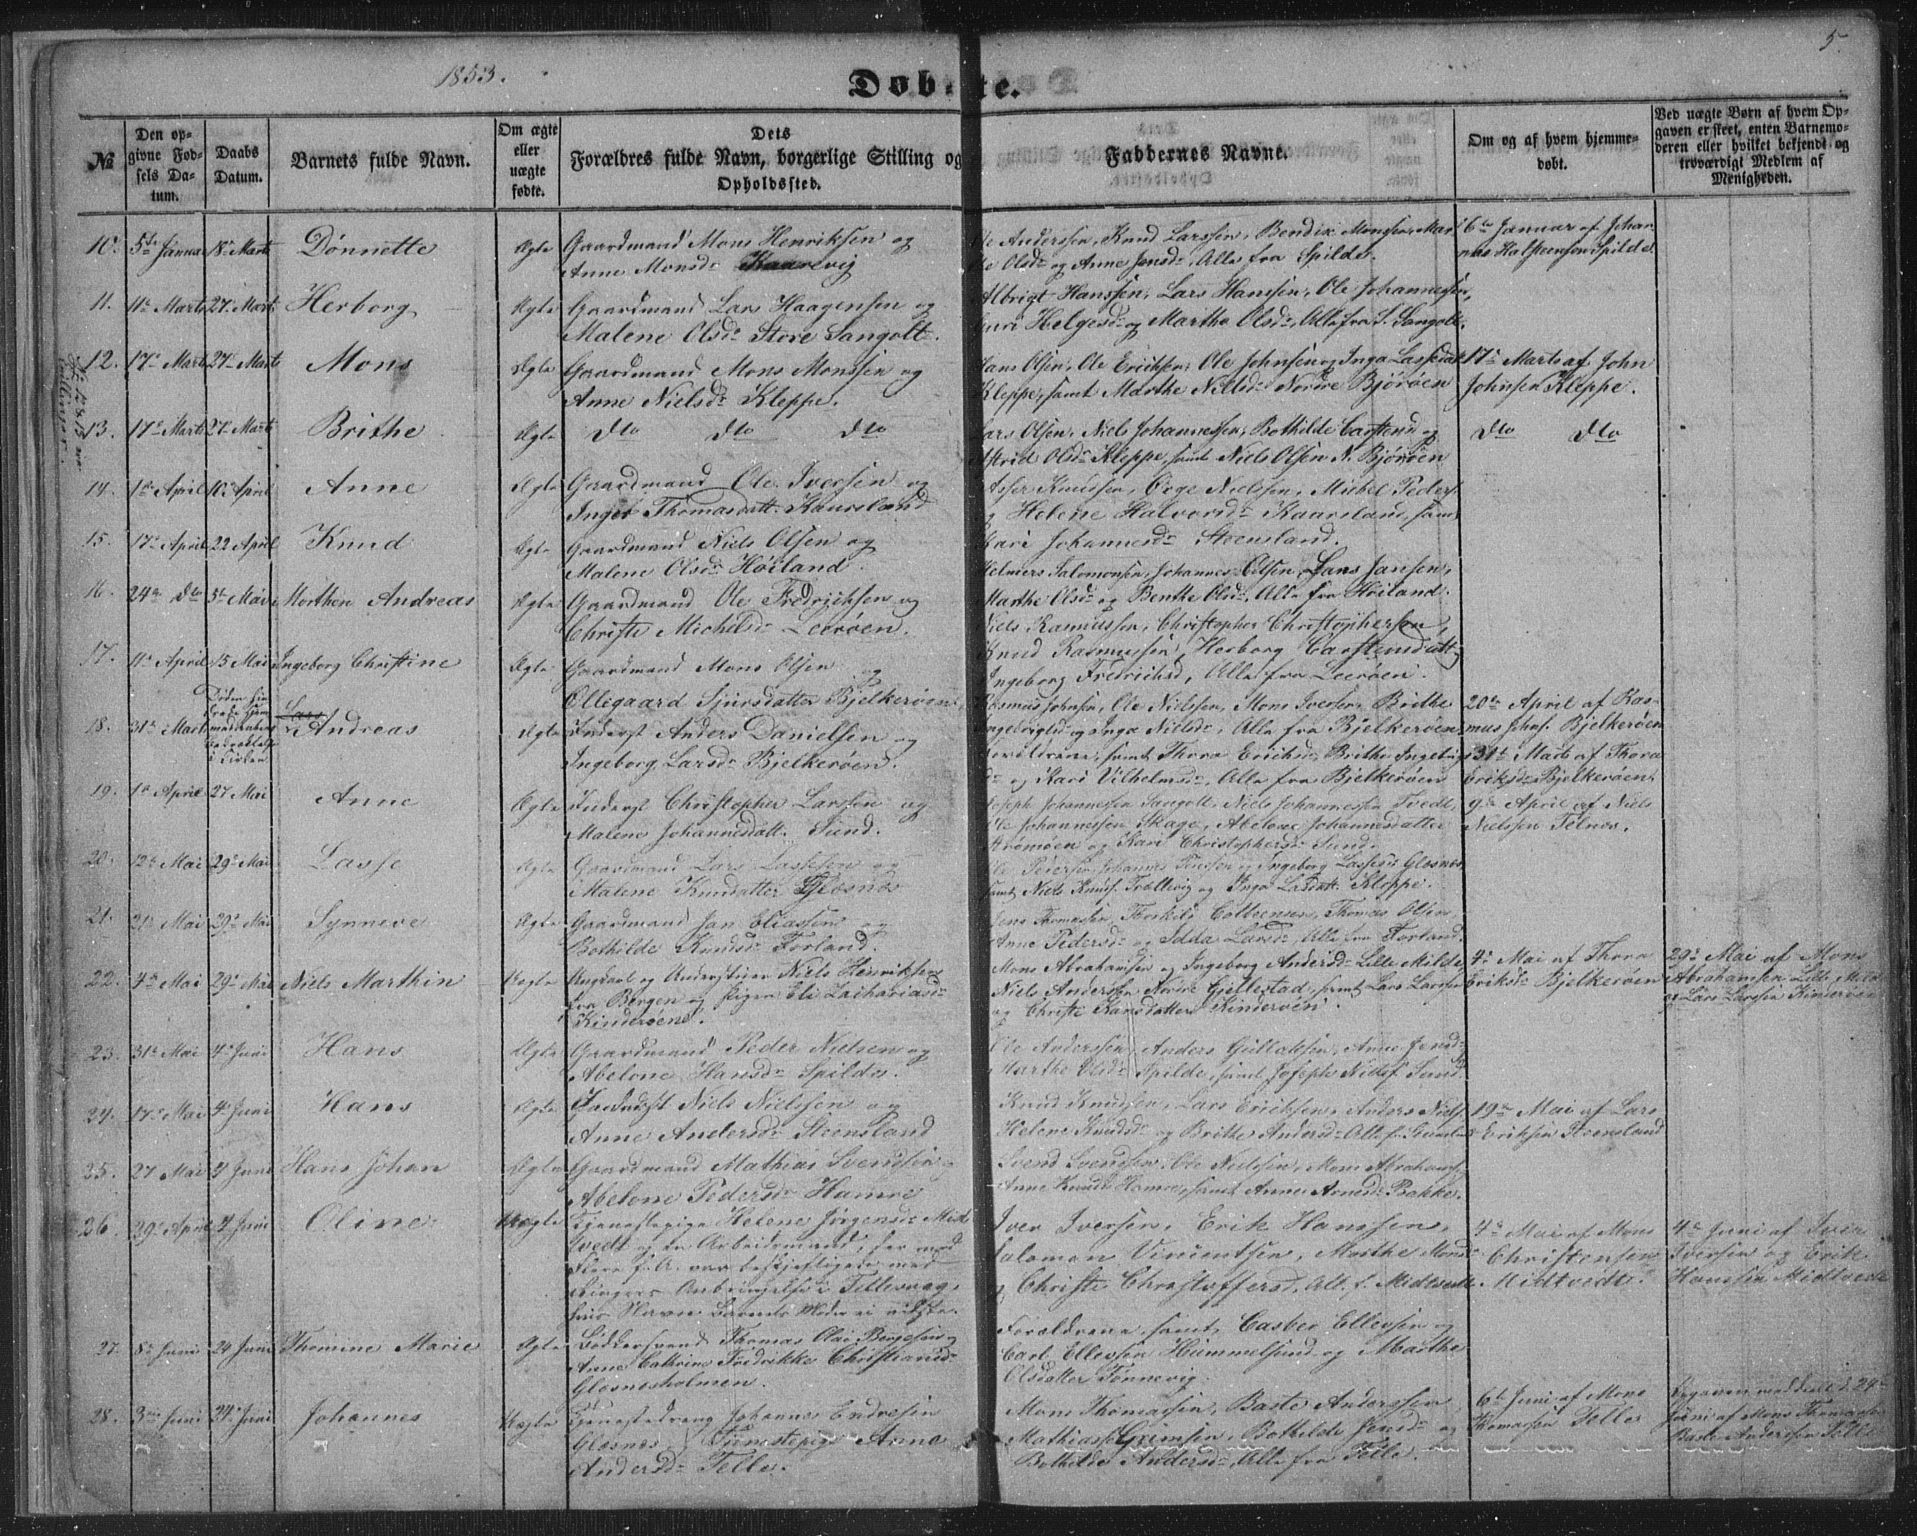 1853.
5.
Døbte.
№
Den opgivne Fødsels Datum.
Daabs Datum.
Barnets fulde Navn.
Om ægte eller uægte fødte.
Dets Forældres fulde Navn, borgerlige Stilling og Opholdssted.
Faddernes Navne.
Om og af hvem hjemmedøbt.
Ved uægte Børn af hvem Opgaven er skeet, enten Barnemoderen eller hvilket bekjendt og troværdigt Medlem af Menigheden.
10. 5te Januar 18 Marts Dønnette Ægte Gaardmand Mons Henriksen og
Anne Monsdr Kaarevig
Ole Anderssen, Knud Larssen, Bendix Monssen, Mar
the Olsdr og Anne Jensdr, Alle fra Spilde.
6te Januar af Johan
nes Spilde
11. 11te Marts 27 Marts Herborg Ægte Gaardmand Lars Haagensen og
Malene Olsdr Store Sangolt.
Albrigt Hanssen, Lars Hansen, Ole Johannessen,
Guri Helgesdr og Marthe Olsdr, Alle fra S. Sangolt.
12. 17de Marts 27 Marts Mons Ægte Gaardmand Mons Monssen og
Anne Nielsdr Kleppe.
Hans Olsen, Ole Eriksen, Ole Johnsen og Inga Lassedatt
Kleppe, samt Marthe Nielsdr Nordre Bjørøen
17de Marts af John
Johnsen Kleppe.
13. 17de Marts 27 Marts Brithe Ægte Dto Dto Dto
Lars Olsen, Niels Johannessen, Bothilde Carstensd og
Astrid Olsdr Kleppe, samt Niels Olsen N. Bjørøen
Dto Dto
14. 1te April 10 April Anne Ægte Gaardmand Ole Iversen og
Inger Thomasdatt. Kaursland
Asser Knudsen, Nielsen, Mikel Peders.
og Helene Halvorsdr Kaarsland, samt
Kari Johannesdr Steensland.
15. 17de April 22 April Knud Ægte Gaardmand Niels Olsen og
Malene Olsdr Høiland.
Helmers Salomonsen, Johannes Olsen, Lars Jansen,
Marthe Olsdr og Benthe Olsdr, Alle fra Høiland.
16. 24de Dto 5te Mai Morthen Andreas Ægte Gaardmand Ole Fredriksen og
Christi Michelsdr Leerøen.
Niels Rasmussen, Christopher Christophersen,
Knud Rasmussen, Herborg Carstensdatt.
Ingeborg Fredrichsd, Alle fra Leerøen.
17. 11te April 15 Mai Ingeborg Christine Ægte Gaardmand Mons Olsen og
Ellegaard Sjursdatter Bjelkerøen.
Rasmus Johnsen, Ole Nielsen, Mons Iversen, Brithe
Ingebrigtsd og Inga Nielsd, Alle fra Bjelkerøen
20de April af Ras
mus Johns. Bjelkerøen
18. 31te Marts Andreas Ægte Inderst Anders Danielsen og
Ingeborg Larsdr Bjelkerøen.
Forældrene, samt Thora Eriksdr, Brithe Ingebrigts
dr og Kari Vilhelmsdr, Alle fra Bjelkerøen
31te Marts af Thora
Eriksdr Bjelkerøen.
19. 1te April 27 Mai Anne Ægte Inderst Christopher Larssen og
Malene Johannesdatt. Sund.
Joseph Johannessen Sangolt, Niels Johannessen Tvedt,
Ole Johannessen Skage, Abelone Johannesdatter
og Kari Christophersdr Sund.
9de April af Niels
Nielssen Telnes.
20. 12te Mai 29de Mai Lasse Ægte Gaardmand Lars Lassesen og
Malene Knudsdatter Glesnes
Ole Pedersen, Johannes og Ingeborg Lassesdr Glesnes
samt Niels Knuds. Trellevig og Inga Larsdatt. Kleppe.
21. 21de Mai 29de Mai Synneve Ægte Gaardmand Jan Eliassen og
Bothilde Knudsdr Forland.
Jens Thomassen, Thomas Olsen,
Anne Pedersdr og Idda Larsdr, Alle fra Forland.
22. 4de Mai 29de Mai Niels Marthin Uægte Ungkarl og Understiger Niels Henriksen
fra Bergen og Pigen Eli Zachariasdr
Kinderøene.
Mons Abrahamsen og Ingeborg Andersdr Lille Milde,
Niels Andersen Nordre Gjellestad, samt Lars Larsen
og Christi Hansdatter Kinderøen.
4de Mai af Thora
Eriksdr Bjelkerøen
29de Mai af Mons
Abrahamsen Lille Milde
og Lars Larsen Kinderøen
23. 31te Mai 4de Juni Hans Ægte Gaardmand Peder Nielsen og
Abelone Hansdr Spilde.
Ole Anderssen, Anders Gulleksen, Anne Jensdr
Marthe Olsdr Spilde, samt Joseph Nielss. Sund
24. 17de Mai 4de Juni Hans Ægte Inderst Niels Nielssen og
Anne Andersdr Steensland
Knud Knudsen, Lars Eriksen, Anders Niels.
Helene Knudsdr og Brithe Andersdr Alle f.
19de Mai af Lars
Eriksen Steensland
25. 27 Mai 4 Juni Hans Johan Ægte Gaardmand Mathias Svendsen
Abelone Pedersdr Hamre
Svend Svendsen, Ole Nielsen, Mons Abrahams.
Anne Knudsdr Hamre, samt Anne Arnesdr Bakke.
26. 29de April 4 Juni Oline Uægte Tjenestepige Helene Jørgensdr Midt
tvedt og en Arbeidsmand, der med
Flere f. A. var beskjeftiget med
Anbringelse i Tellevaag,
hvis Navn Barnets Moder ei vidste.
Iver Iversen, Erik Hanssen,
Salomon Vincentsen, Marthe Monsdr
og Christi Christoffersd, Alle f. Midtvedt
4de Mai af Mons
Christensen
Midtvedt.
4de Juni af Iver
Iversen og Erik
Hanssen Midtvedt
27. 8de Juni 24 Juni Thomine Marie Ægte Bødkersvend Thomas Olai Børgesen og
Anne Cathrine Fredrikke Christiansdr
Glesnesholmen.
Forældrene, samt Casber Ellevsen og
Carl Ellevsen Hummelsund og Marthe
Olsdatter Tønnevig.
28. 3die Juni 24 Juni Johannes Uægte Tjenestedreng Johannes Endresen
Glesnes, Tjenestepige Anne
Andersdr Telle.
Mons Thomassen, Baste Anderssen,
Mathias Grimsen, Bothilde Jensdr og
Bothilde Andersdr, Alle fra Telle.
6te Juni af Mons
Thomassen Telle
Opgaven meddeelt d. 24de
Juni af Mons Thomassen
Baste Anderssen Telle